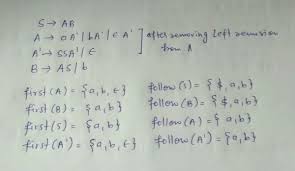 S → AB
A → aA' | bA' | ϵA' ] after removing left recursion
A' → SSA' | ϵ from A
B → AS | b
first(A) = {a, b, ϵ} follow(S) = {$, a, b}
first(B) = {a, b} follow(B) = {$, a, b}
first(S) = {a, b} follow(A) = {a, b}
first(A') = {a, b, ϵ} follow(A') = {a, b}